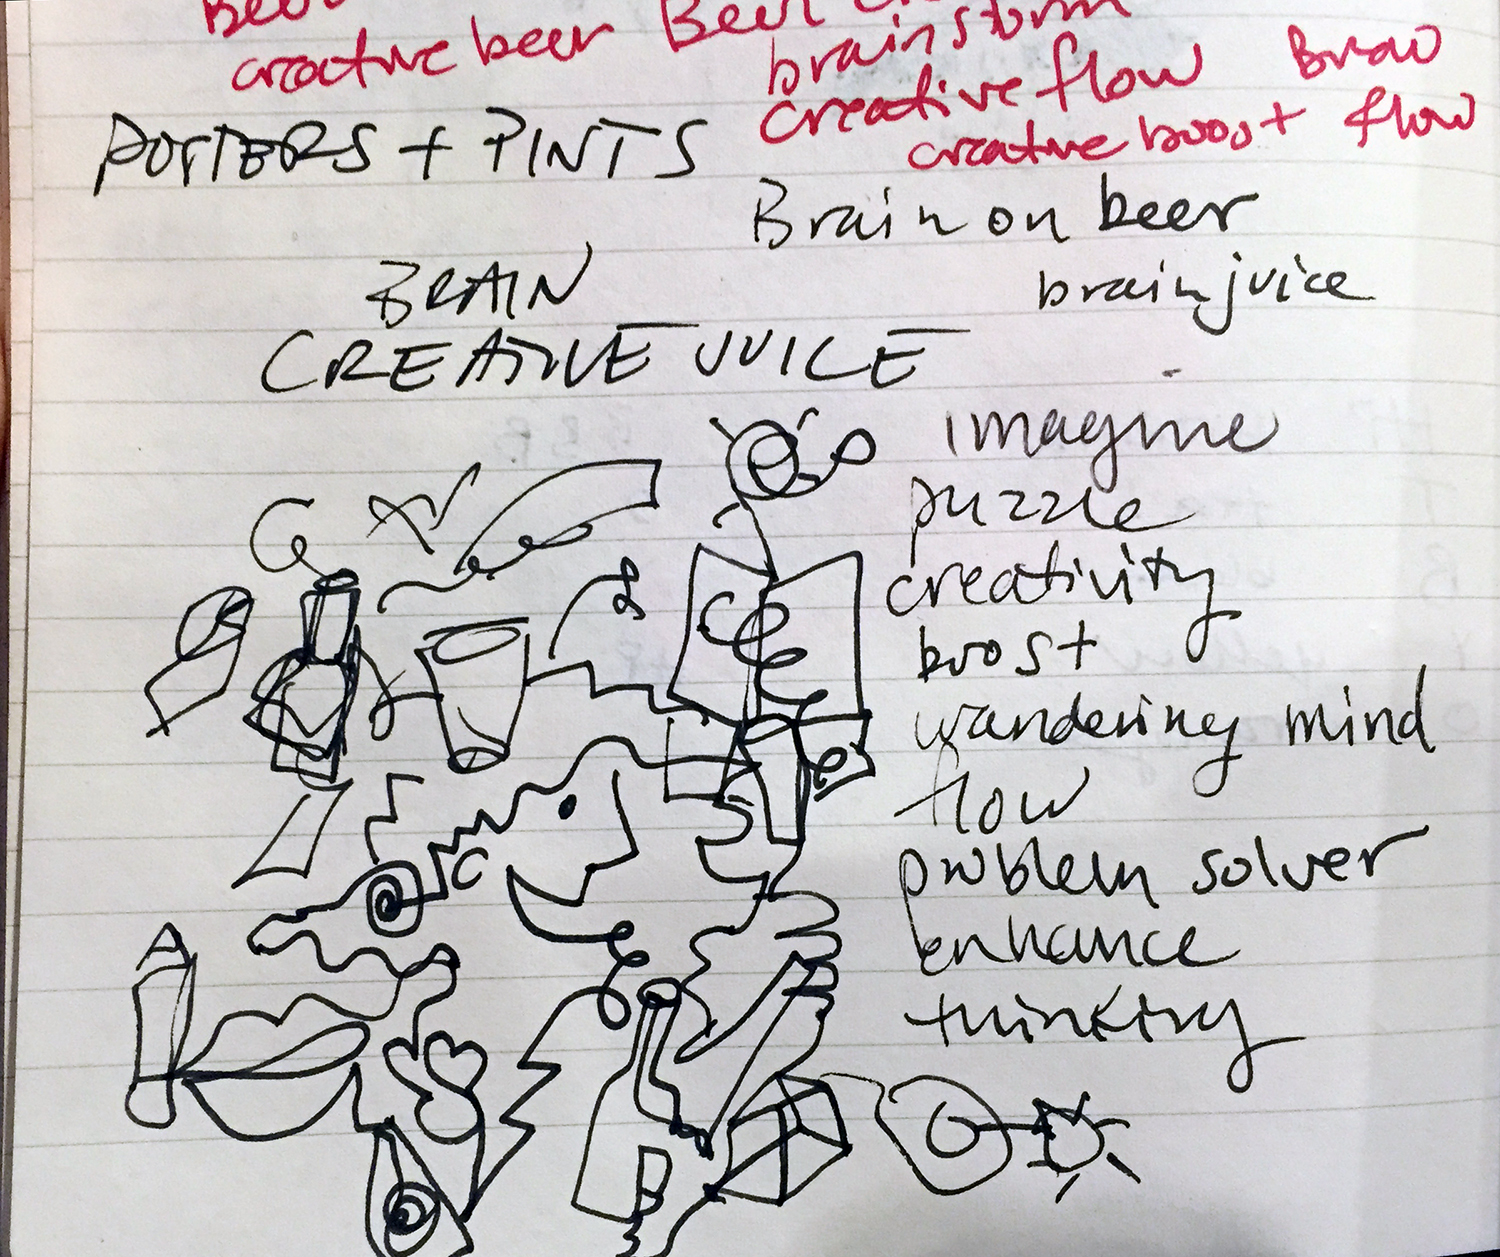 creative beer Beer
brainstorm
creative flow
creative boost flow
POSTERS + PINTS
Brain on beer
BRAIN
brain juice
CREATIVE JUICE
imagine
puzzle
creativity
boost
wandering mind
flow
problem solver
enhance
thinking